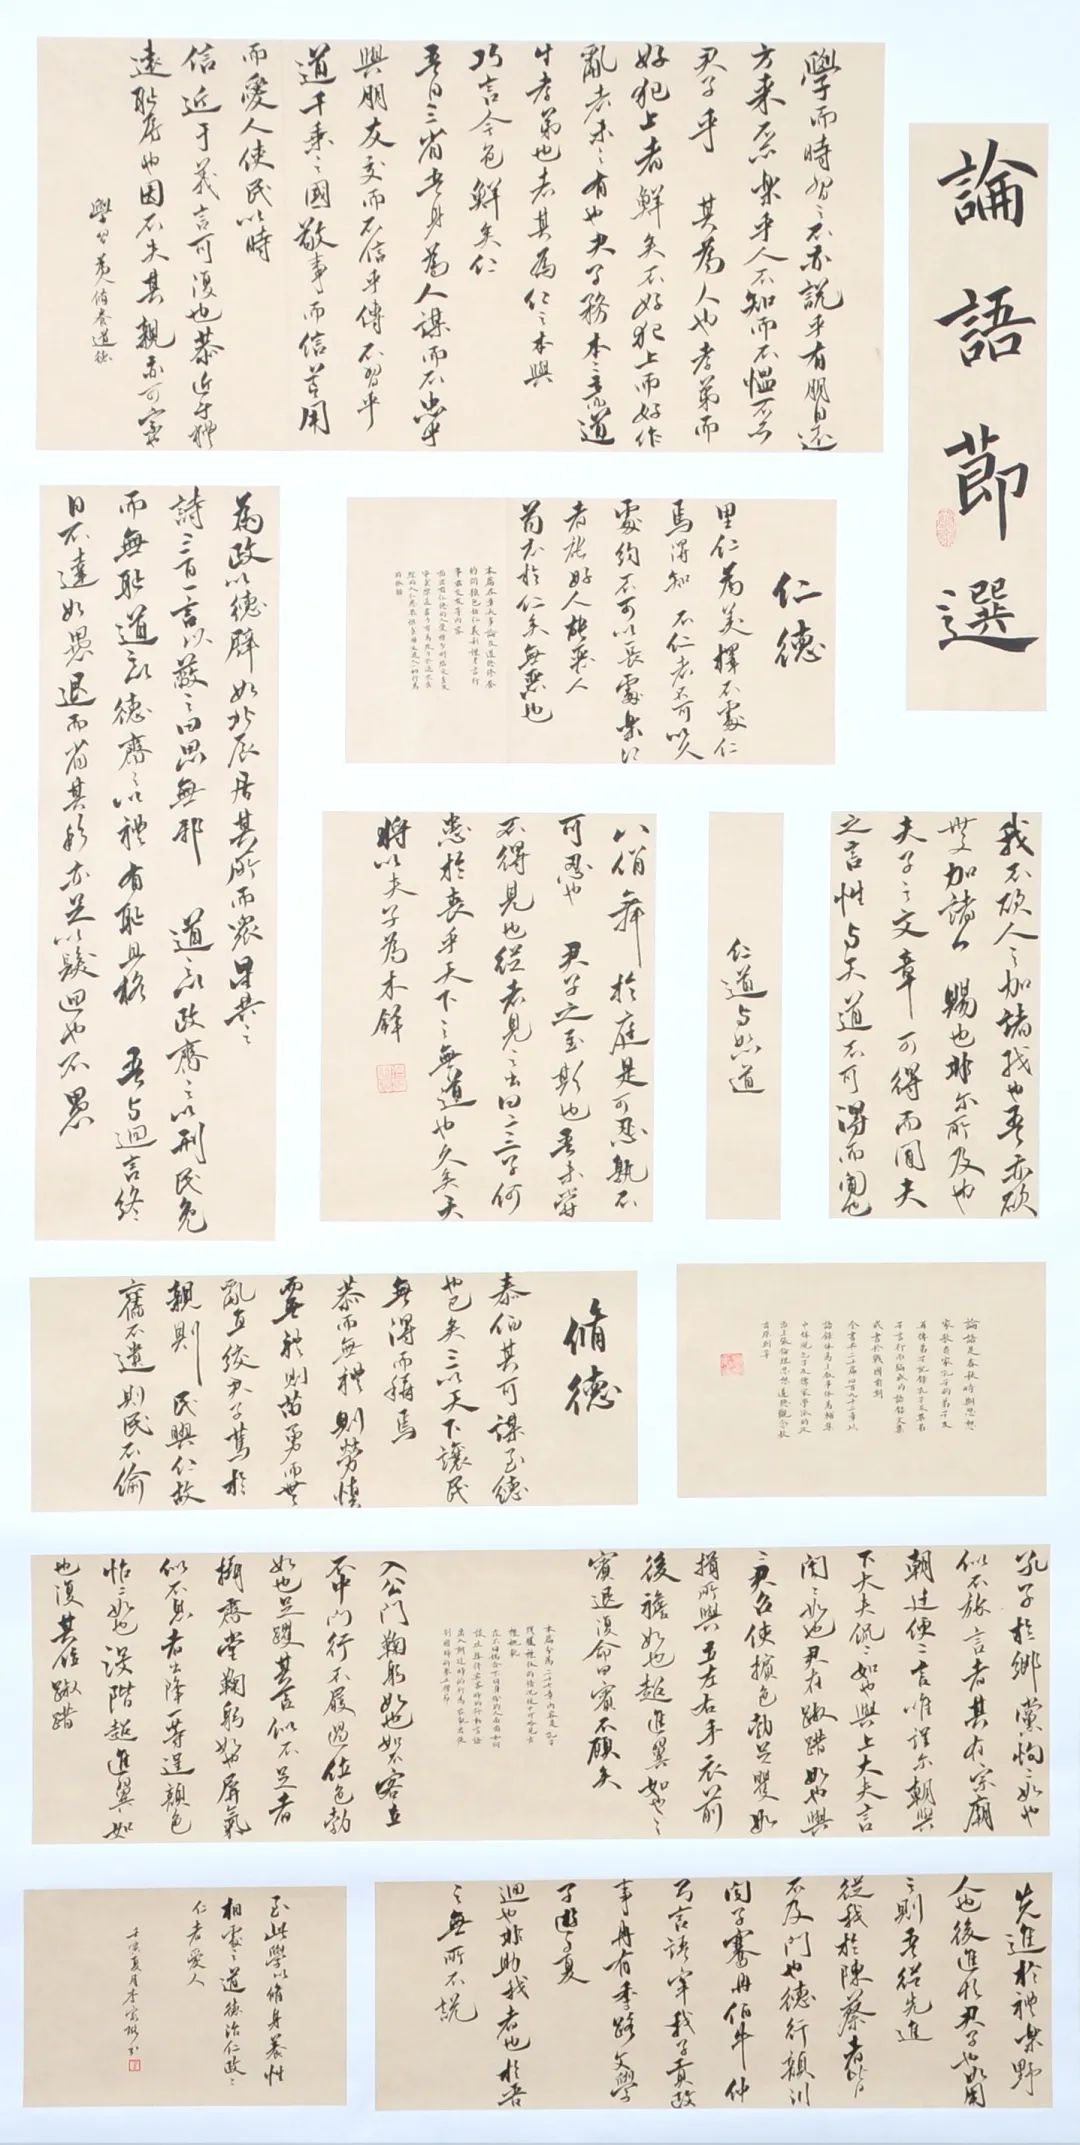 論語節選
學而時習之不亦說乎有朋自遠
方來不亦樂乎人不知而不愠不亦
君子乎 其為人也孝弟而
好犯上者鮮矣不好犯上而好作
亂者未之有也君子務本本立而道
生孝弟也者其為仁之本與
巧言令色鮮矣仁
吾日三省吾身為人謀而不忠乎
與朋友交而不信乎傳不習乎
道千乘之國敬事而信節用
而愛人使民以時
信近于義言可復也恭近于禮
遠恥辱也因不失其親亦可宗
學習為人脩養道德
為政以德辟如北辰居其所而衆星共之
詩三百一言以蔽之曰思無邪 道之以政齊之以刑民免
而無恥道之以德齊之以禮有恥且格 吾与迴言終
日不違如愚退而省其私亦足以發迴也不愚
仁德
里仁為美擇不處仁
焉得知 不仁者不可以久
處約不可以長處樂仁
者能好人能惡人
苟志於仁矣無惡也
我不欲人之加諸我也吾亦欲
無加諸人 賜也非尔所及也
夫子之文章可得而聞夫
之言性与天道不可得而聞也
仁道与恕道
八佾舞於庭是可忍孰不
可忍也 君子之至斯也吾未嘗
不得見也從者見之出曰二三子何
患於喪乎天下之無道也久矣天
將以夫子為木鐸
論語是春秋時期思想
家教育家孔子的弟子及
再傳弟子記錄孔子及其弟
子言行而編成的語錄文集
成書於戰國前期
全書共二十篇四百九十二章以
語錄體為主叙事體為輔集
中體現孔子及儒家學派的政
治主張倫理思想道德觀念教
育原則等
脩德
泰伯其可謂至德
也已矣三以天下讓民
無得而稱焉
恭而無禮則勞慎
而無禮則葸勇而無
亂直絞君子篤於
親則 民興仁故
舊不遺則民不偷
孔子於鄉黨恂恂如也
似不能言者其在宗廟
朝廷便便言唯謹尔朝與
下大夫侃侃如也與上大夫言
誾誾如也君在踧踖如也與
與君召使擯色勃足躩如
揖所與立左右手衣前
後襜如也趨進翼如也
賓退復命曰賓不顧矣
入公門鞠躬如也如不容立
不中門行不履過位色勃
如也足躩其言似不足者
攝齊堂鞠躬如也屏氣
似不息者出降一等逞顏色
怡怡如也沒階趨進翼如
也復其位踧踖
先進於禮樂野
人也後進於君子也如用
之則吾從先進
從我於陳蔡者皆
不及門也德行顏淵
閔子騫冉伯牛仲
弓言語宰我子貢政
事冉有季路文學
子游子夏
迴也非助我者也於吾
言無所不說
至此學以脩身養性
相處之道德治仁政
仁者愛人